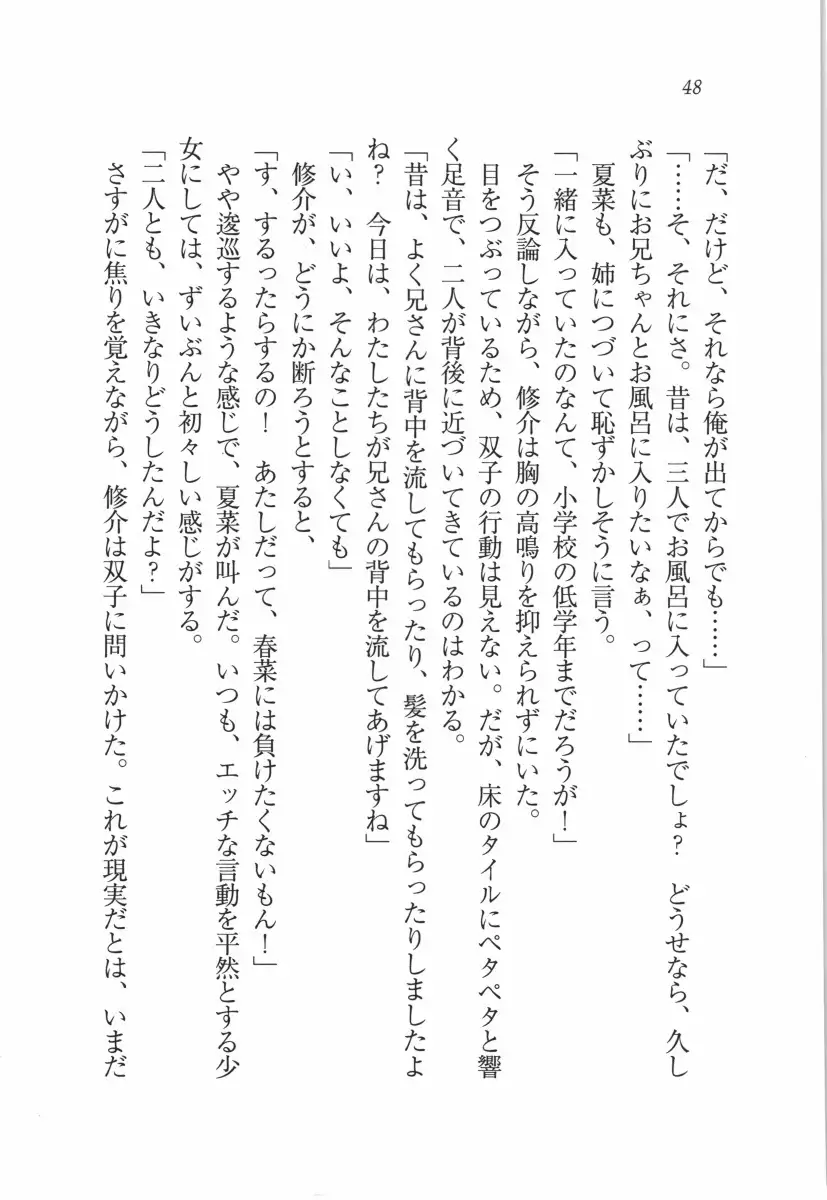 48
「だ、だけど、それなら俺が出てからでも……」
「……そ、それにさ。昔は、三人でお風呂に入っていたでしょ？　どうせなら、久し
ぶりにお兄ちゃんとお風呂に入りたいなぁ、って……」
　夏菜も、姉につづいて恥ずかしそうに言う。
「一緒に入っていたのなんて、小学校の低学年までだろうが！」
　そう反論しながら、修介は胸の高鳴りを抑えられずにいた。
　目をつぶっているため、双子の行動は見えない。だが、床のタイルにペタペタと響
く足音で、二人が背後に近づいてきているのはわかる。
「昔は、よく兄さんに背中を流してもらったり、髪を洗ってもらったりしましたよ
ね？　今日は、わたしたちが兄さんの背中を流してあげますね」
「い、いいよ、そんなことしなくても」
　修介が、どうにか断ろうとすると、
「す、するったらするの！　あたしだって、春菜には負けたくないもん！」
　やや逡巡するような感じで、夏菜が叫んだ。いつも、エッチな言動を平然とする少
女にしては、ずいぶんと初々しい感じがする。
「二人とも、いきなりどうしたんだよ？」
　さすがに焦りを覚えながら、修介は双子に問いかけた。これが現実だとは、いまだ